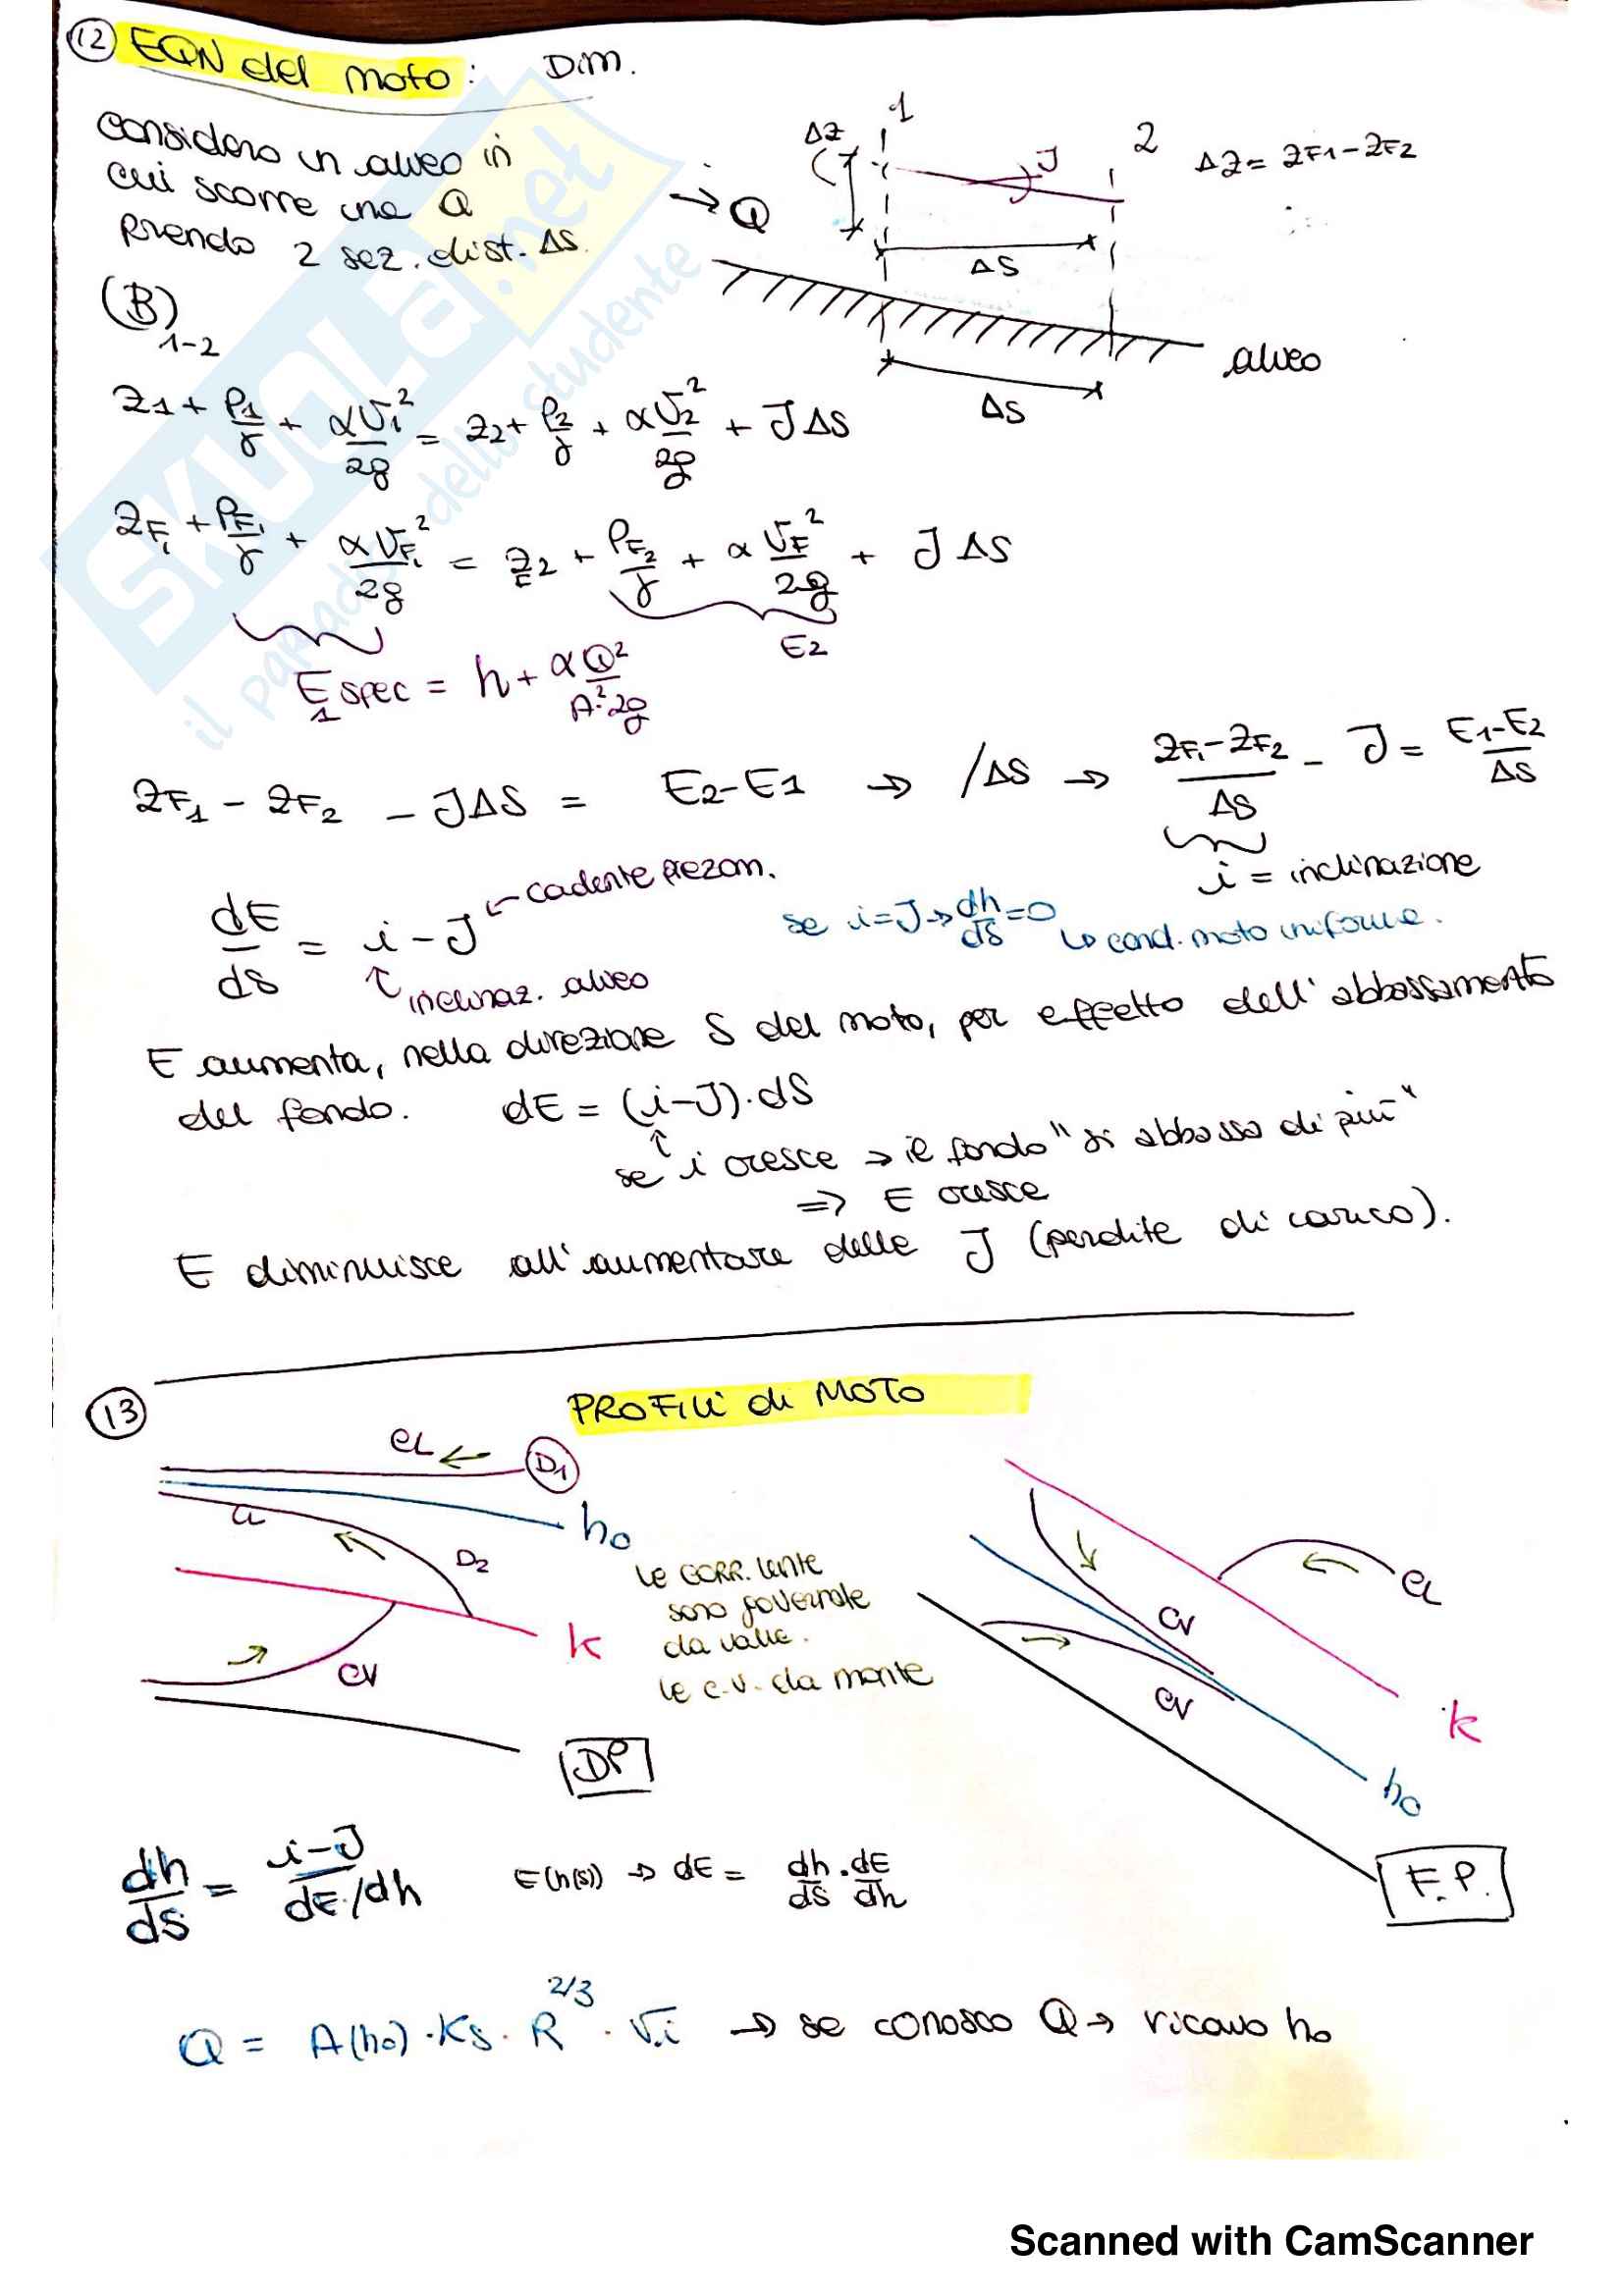 12 EQN del moto: Dim.
considero un alveo in
cui scorre una Q
prendo 2 sez. dist. ΔS.
(B)1-2
→ Q
ΔZ
1
2
J
ΔZ = ZF1-ZF2
ΔS
alveo
ΔS
Z1 + P1/γ + αV1²/2g = Z2 + P2/γ + αV2²/2g + JΔS
ZF1 + PF1/γ + αVF1²/2g = ZF2 + PF2/γ + αVF²/2g + JΔS
E2
E1 spec = h + αQ²/A²·2g
ZF1 - ZF2 - JΔS = E2-E1 → /ΔS → ZF1-ZF2/ΔS - J = E1-E2/ΔS
i = inclinazione
dE/dS = i - J ← cadente piezom.
↑ inclinaz. alveo
se i=J → dh/dS = 0
↳ cond. moto uniforme.
E aumenta, nella direzione S del moto, per effetto dell'abbassamento
del fondo. dE = (i-J)·dS
↑
se i cresce → il fondo "si abbassa di più"
=> E cresce
E diminuisce all'aumentare delle J (perdite di carico).
13 PROFILI di MOTO
CL ←
D1
h0
D2
k
CV
DP
le CORR. lente
sono governate
da valle.
le c.v. da monte
CL
CV
CV
k
h0
F.P.
dh/dS = i-J/dE/dh E(h(s)) → dE = dh/dS · dE/dh
Q = A(h0)·Ks·R^2/3·√i → se conosco Q → ricavo h0
SKUOLA.net
il paradiso dello studente
Scanned with CamScanner